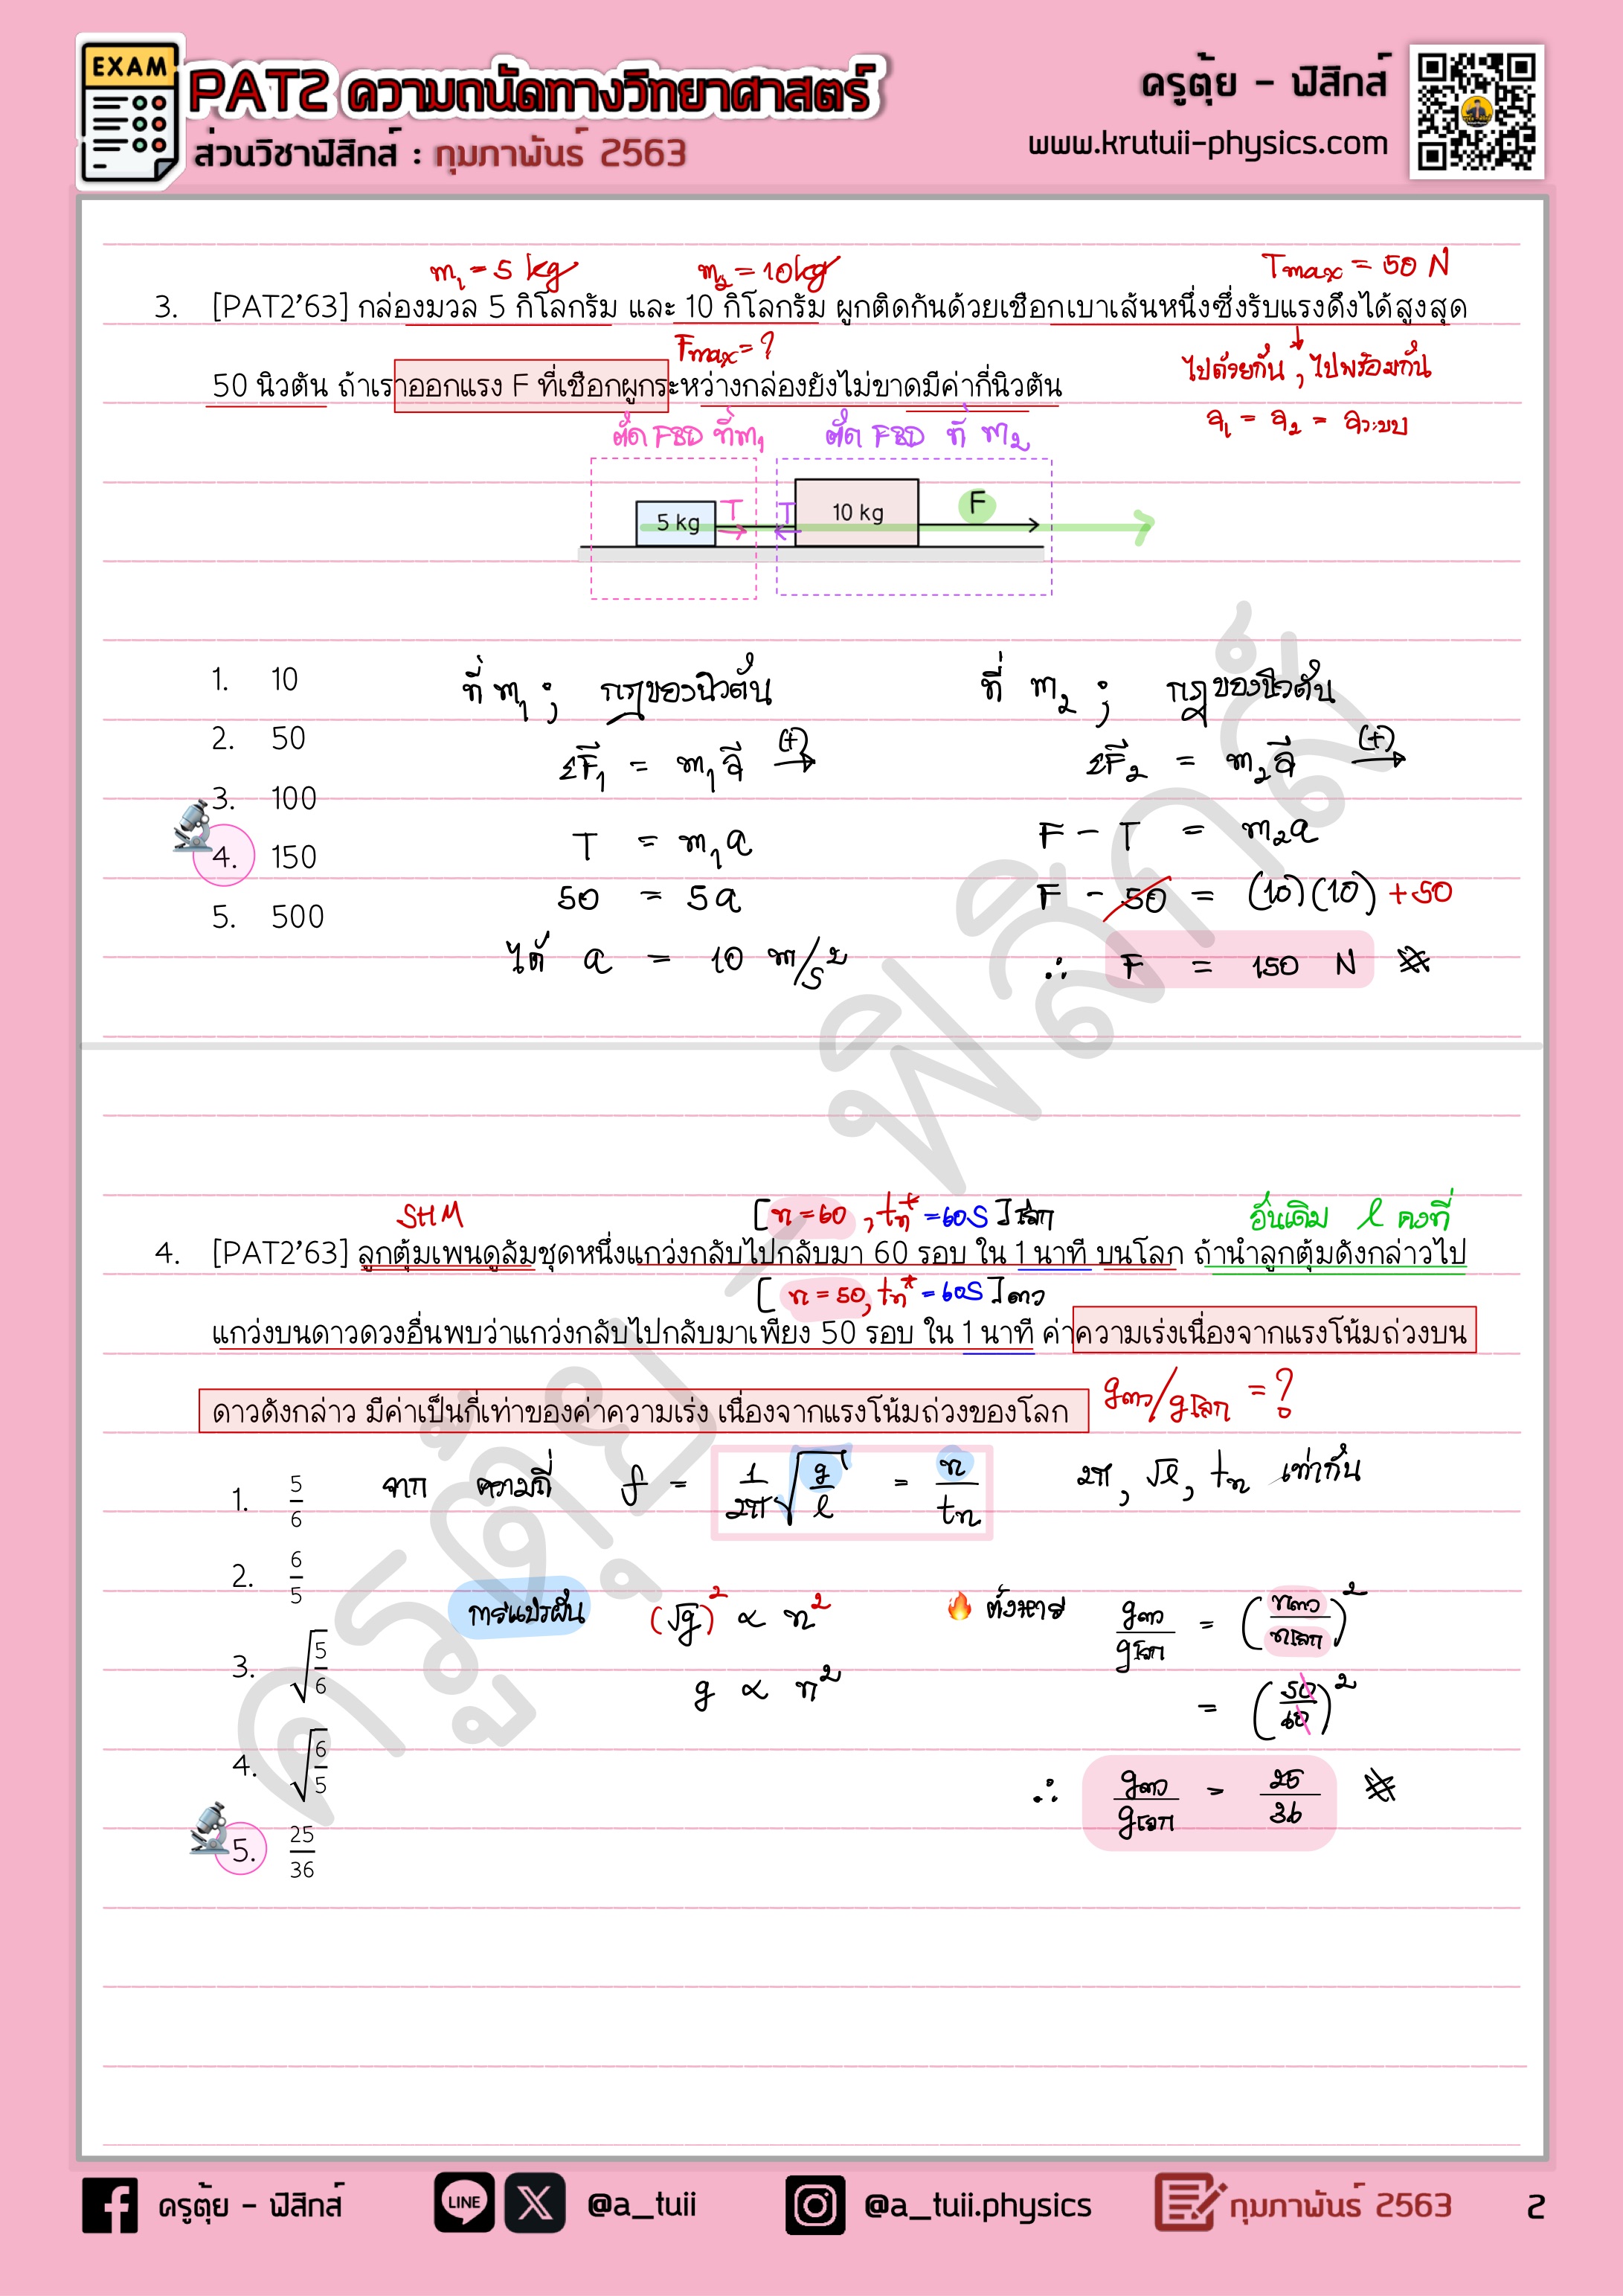 EXAM
PAT2 ความถนัดทางวิทยาศาสตร์
ส่วนวิชาฟิสิกส์ : กุมภาพันธ์ 2563
ครูตุ้ย - ฟิสิกส์
www.krutuii-physics.com
m₁ = 5 kg
m₂ = 10 kg
Tmax = 50 N
3. [PAT2'63] กล่องมวล 5 กิโลกรัม และ 10 กิโลกรัม ผูกติดกันด้วยเชือกเบาเส้นหนึ่งซึ่งรับแรงดึงได้สูงสุด
Fmax = ?
50 นิวตัน ถ้าเราออกแรง F ที่เชือกผูกระหว่างกล่องยังไม่ขาดมีค่ากี่นิวตัน
ไปด้วยกัน, ไปพร้อมกัน
a₁ = a₂ = aระบบ
ตัด FBD ที่ m₁
ตัด FBD ที่ m₂
5 kg T T 10 kg F
1. 10
2. 50
3. 100
4. 150
5. 500
ที่ m₁ ; กฎของนิวตัน
ΣF₁ = m₁a (+)
T = m₁a
50 = 5a
ได้ a = 10 m/s²
ที่ m₂ ; กฎของนิวตัน
ΣF₂ = m₂a (+)
F - T = m₂a
F - 50 = (10)(10) + 50
∴ F = 150 N
SHM
[n = 60, tn* = 60S] โลก
อันเดิม l คงที่
4. [PAT2'63] ลูกตุ้มเพนดูลัมชุดหนึ่งแกว่งกลับไปกลับมา 60 รอบ ใน 1 นาที บนโลก ถ้านำลูกตุ้มดังกล่าวไป
[n = 50, tn* = 60S] ดาว
แกว่งบนดาวดวงอื่นพบว่าแกว่งกลับไปกลับมาเพียง 50 รอบ ใน 1 นาที ค่าความเร่งเนื่องจากแรงโน้มถ่วงบน
ดาวดังกล่าว มีค่าเป็นกี่เท่าของค่าความเร่ง เนื่องจากแรงโน้มถ่วงของโลก
gดาว/gโลก = ?
1. 5/6
2. 6/5
3. √(5/6)
4. √(6/5)
5. 25/36
จาก ความถี่ f = 1/2π √(g/l) = n/tn
2π, √l, tn เท่ากัน
การแปรผัน (√g)² ∝ n²
g ∝ n²
ตั้งหาร gดาว/gโลก = (nดาว/nโลก)²
= (50/60)²
∴ gดาว/gโลก = 25/36
ครูตุ้ย - ฟิสิกส์
ครูตุ้ย - ฟิสิกส์
LINE
@a_tuii
@a_tuii.physics
กุมภาพันธ์ 2563
2